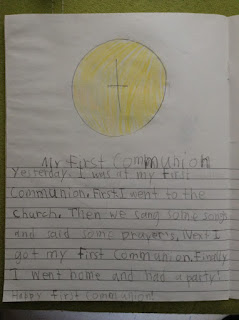 My First Communion
Yesterday, I was at my firds
Communion. First I went to the
church. Then we sang some songs
and said some prayers. Next I
got my first communion. Finally
I went home and had a party!
Happy first communion!